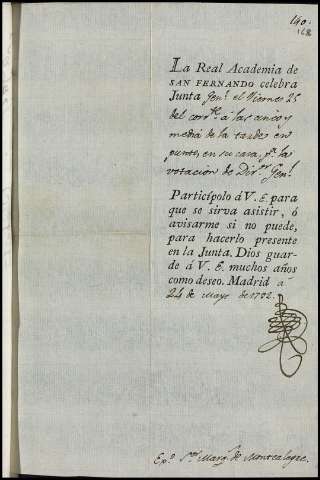 140.
168
La Real Academia de
SAN FERNANDO celebra
Junta Gen.l el Viernes 25
del corr.te á las cinco y
media de la tarde en
punto, en su casa, p.a la
votacion de Dir.or Gen.l
Participolo á V. E. para
que se sirva asistir, ó
avisarme si no puede,
para hacerlo presente
en la Junta. Dios guar-
de á V. E. muchos años
como deseo. Madrid a
24 de Mayo de 1792.
S.or Marq.s de Montealegre.